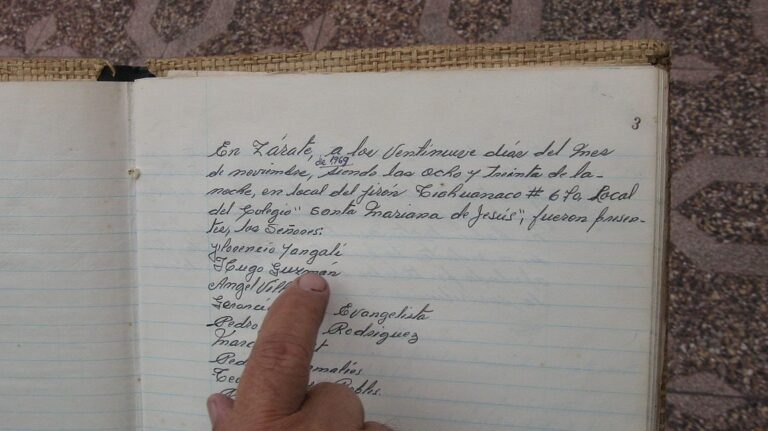 3
En Zárate, a los ventinueve días del mes
de 1969
de noviembre, siendo las ocho y treinta de la
noche, en local del jirón Tiahuanaco # 670, Local
del Colegio "Santa Mariana de Jesús", fueron presen-
tes, los Señores:
Florencio Yangali
Hugo Guzmán
Angel
Evangelista
Pedro Rodriguez
Robles.